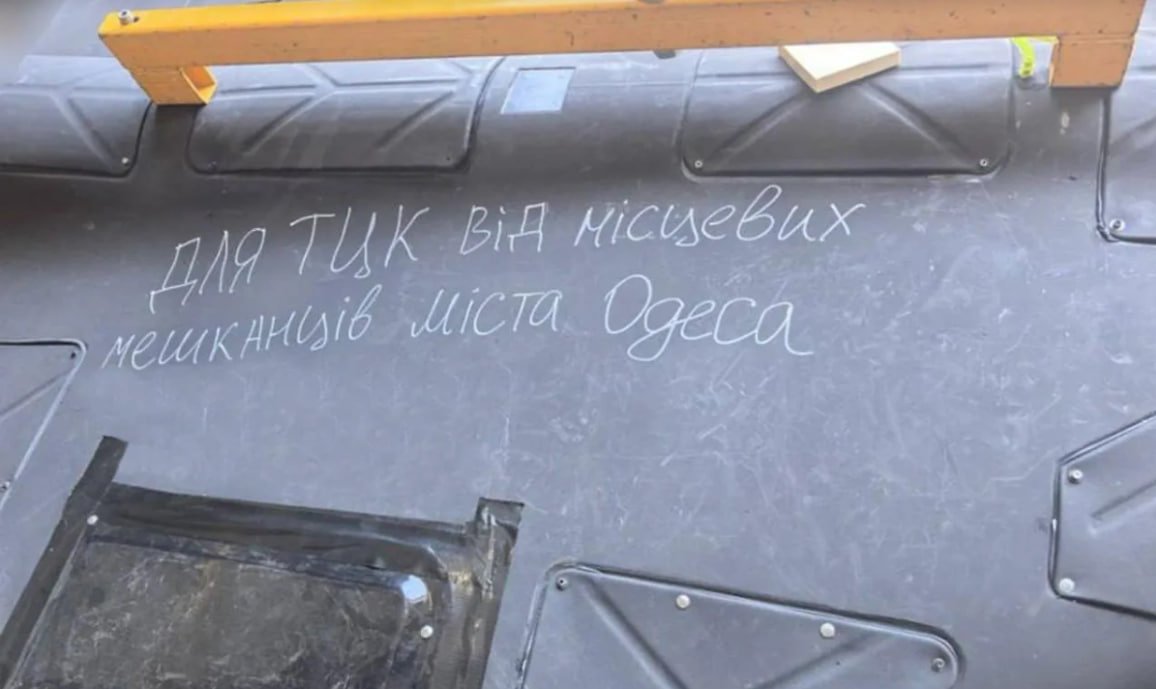 для ТЦК від місцевих
мешканців міста Одеса